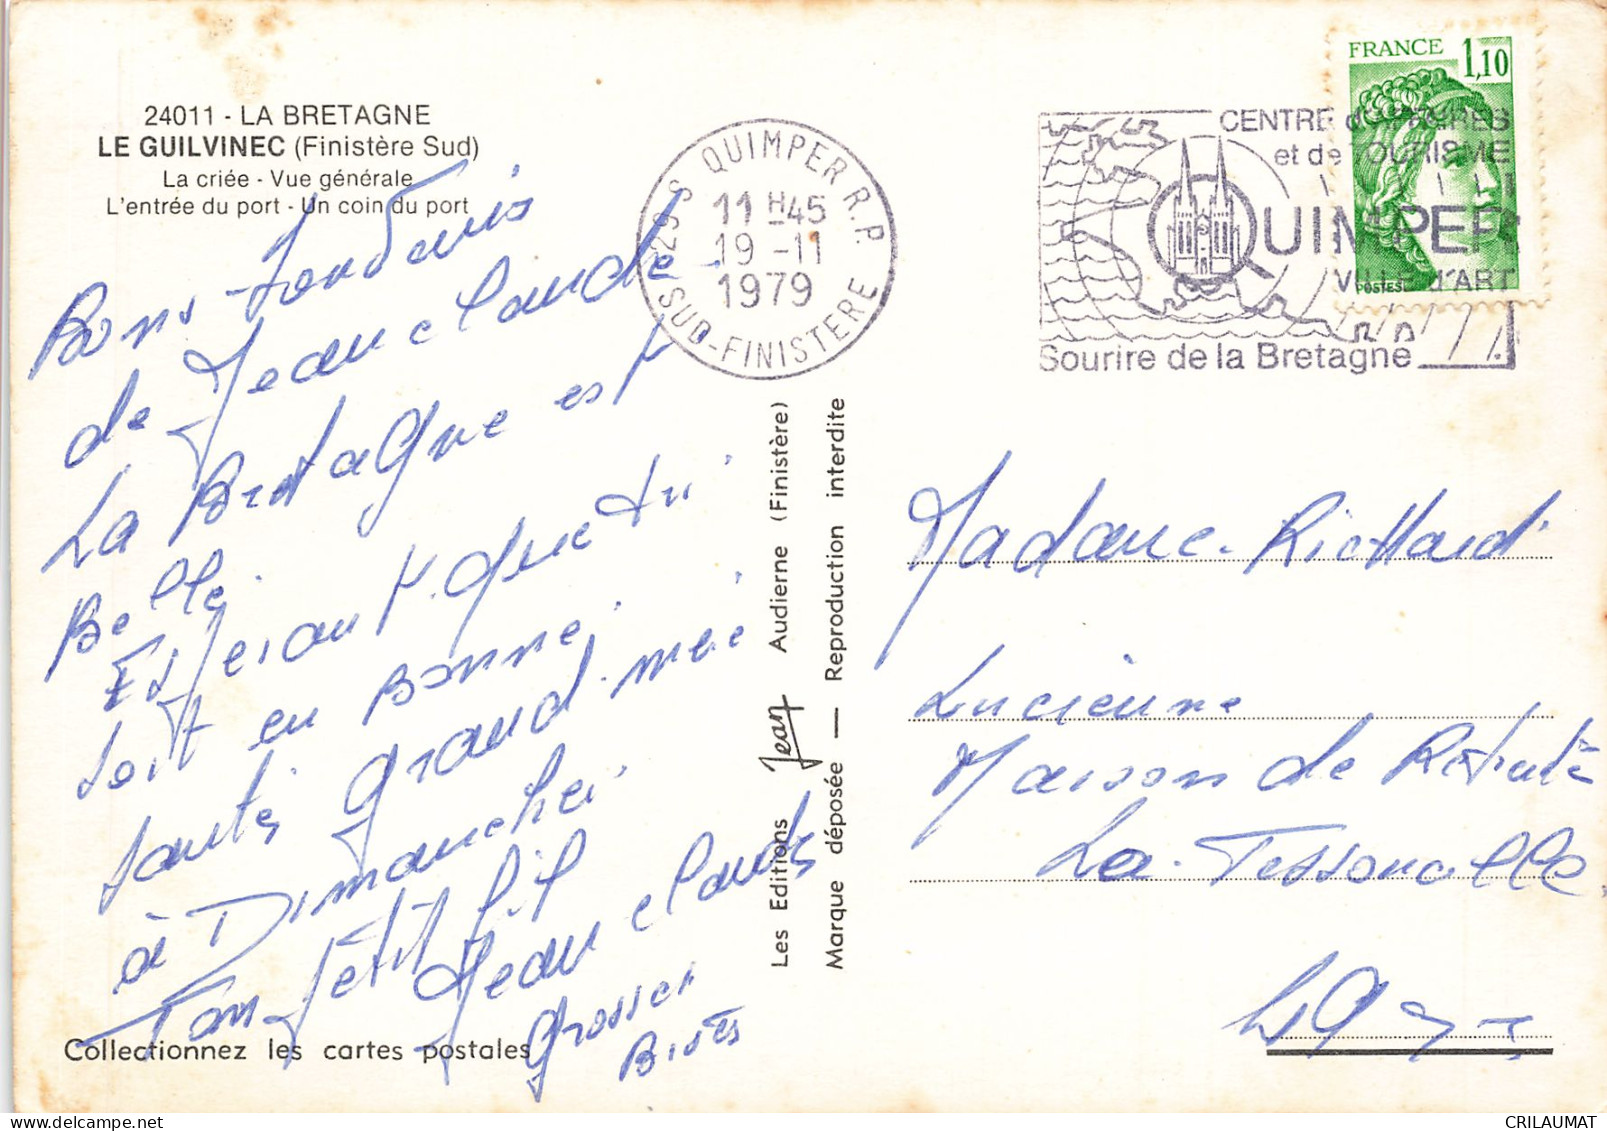 24011 - LA BRETAGNE
LE GUILVINEC (Finistère Sud)
La criée - Vue générale
L'entrée du port - Un coin du port
Bons
de Jean claude
La Bretagne est
Belle
Esperant que tu
soit en Bonne
santé grand-mere
à Dimanche
Ton petit fil
Jean claude
grosses
Bises
Collectionnez les cartes postales
29 S QUIMPER R.P.
11 H45
19 -11
1979
SUD-FINISTERE
CENTRE d'AFFAIRES
et de TOURISME
QUIMPER
VILLE d'ART
Sourire de la Bretagne
FRANCE 1,10
POSTES
Les Editions Jean Audierne (Finistère)
Marque déposée — Reproduction interdite
Madame Richard
Lucienne
Maison de Retraite
La Tessoualle
49
CRILAUMAT